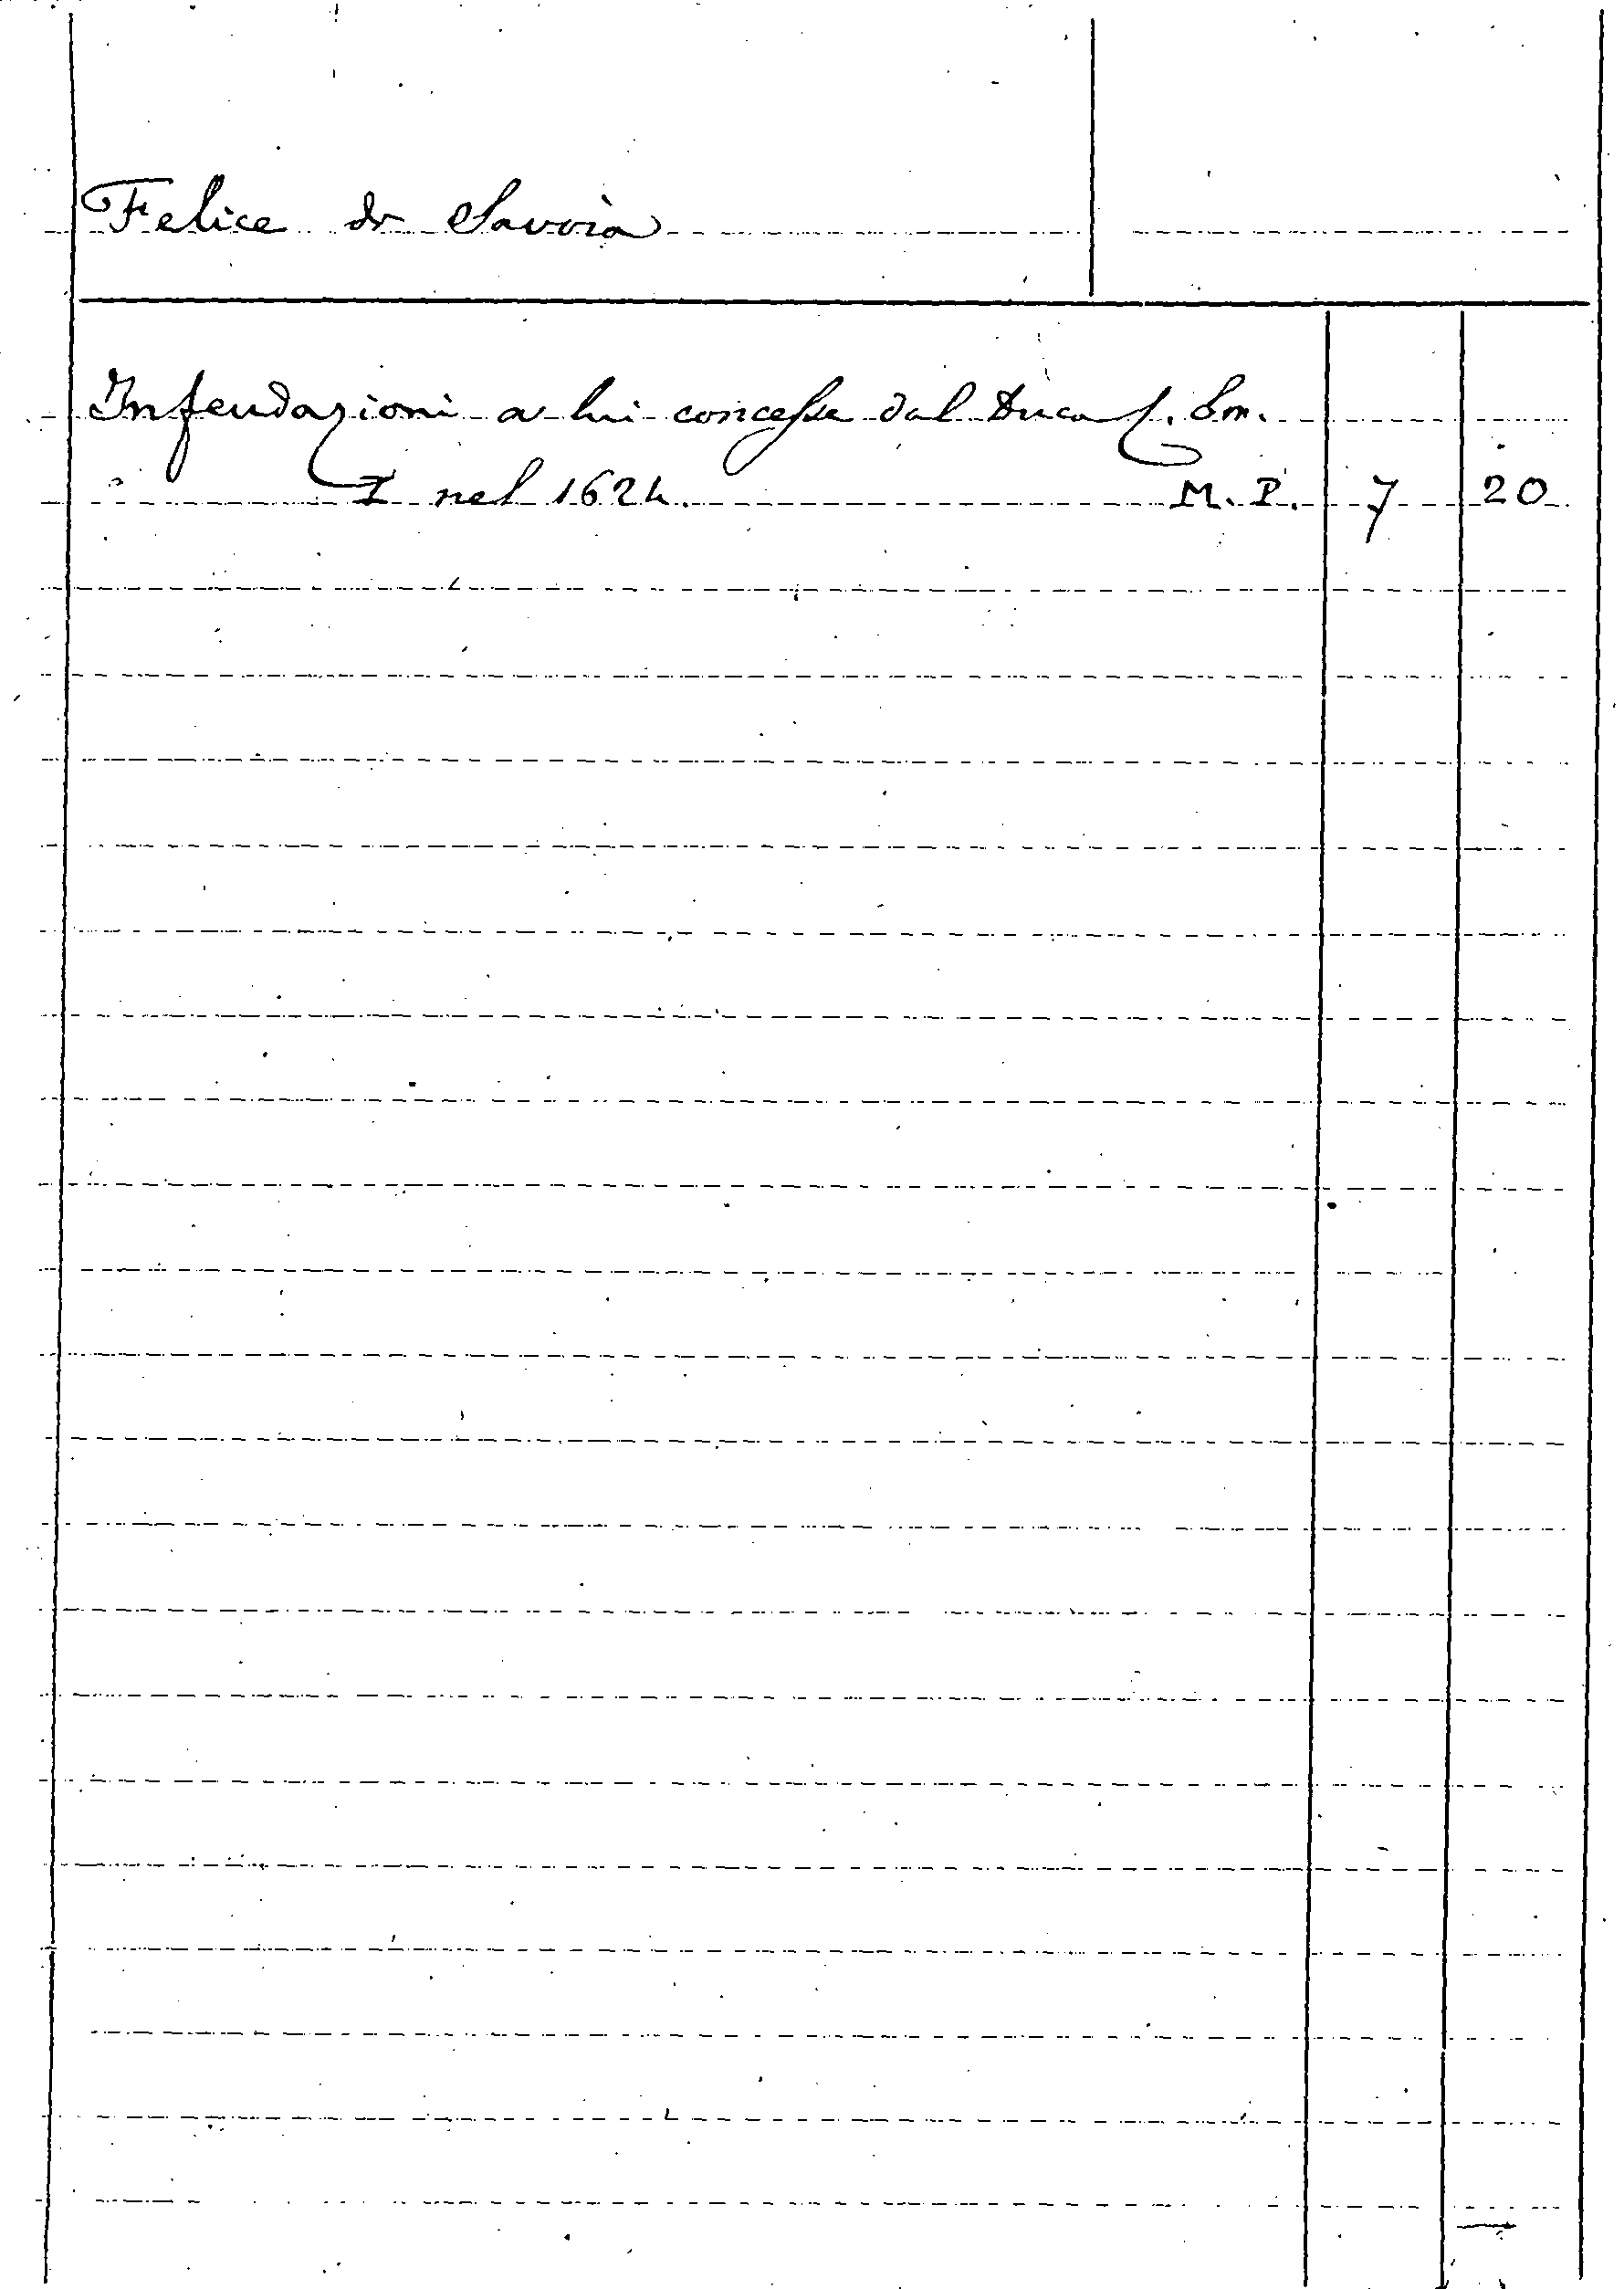 Felice di Savoia
Infeudazioni a lui concesse dal Duca C. Em.
I nel 1624. M. P. 7 20